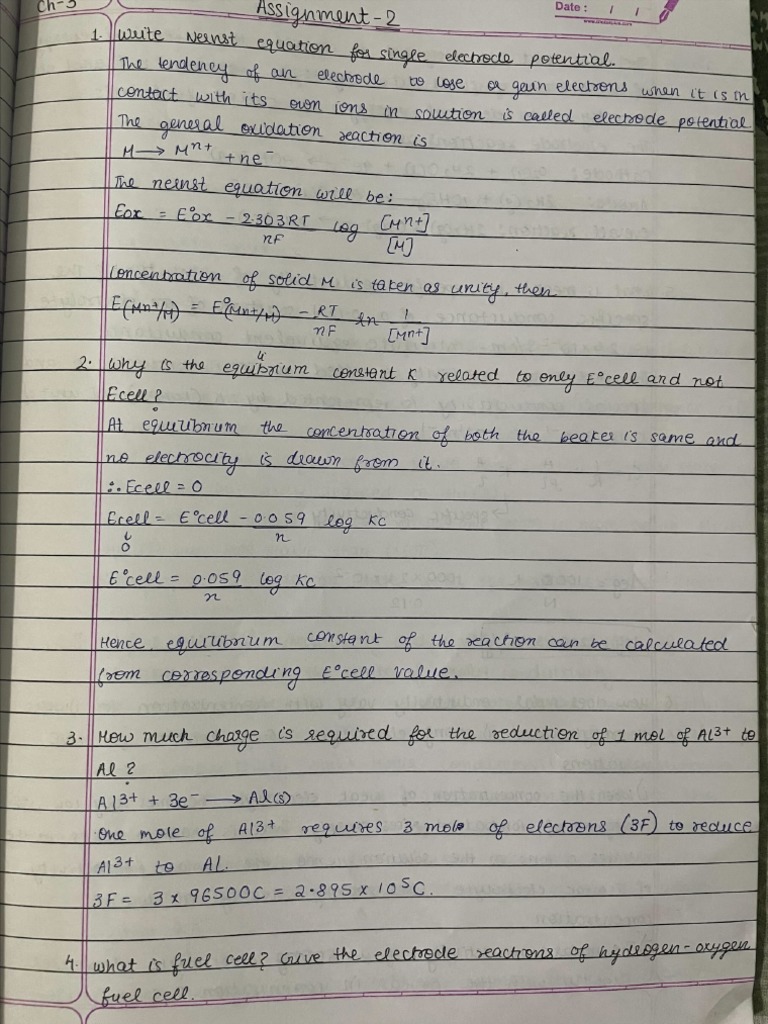 Ch-3
Assignment-2
Date : / /
1. Write Nernst equation for single electrode potential.
The tendency of an electrode to lose or gain electrons when it is in
contact with its own ions in solution is called electrode potential
The general oxidation reaction is
M → Mⁿ⁺ + ne⁻
The nernst equation will be:
Eox = E°ox - 2.303RT/nF log [Mⁿ⁺]/[M]
Concentration of solid M is taken as unity, then
E(Mⁿ⁺/M) = E°(Mⁿ⁺/M) - RT/nF ln 1/[Mⁿ⁺]
2. Why is the equilibrium constant K related to only E°cell and not
Ecell?
At equilibrium the concentration of both the beaker is same and
no electrocity is drawn from it.
∴ Ecell = 0
Ecell = E°cell - 0.059/n log Kc
↓
0
E°cell = 0.059/n log Kc
Hence equilibrium constant of the reaction can be calculated
from corresponding E°cell value.
3. How much charge is required for the reduction of 1 mol of Al3+ to
Al?
Al3+ + 3e⁻ → Al(s)
One mole of Al3+ requires 3 mole of electrons (3F) to reduce
Al3+ to AL.
3F = 3 x 96500C = 2.895 x 10⁵C.
4. What is fuel cell? Give the electrode reactions of hydrogen-oxygen
fuel cell.